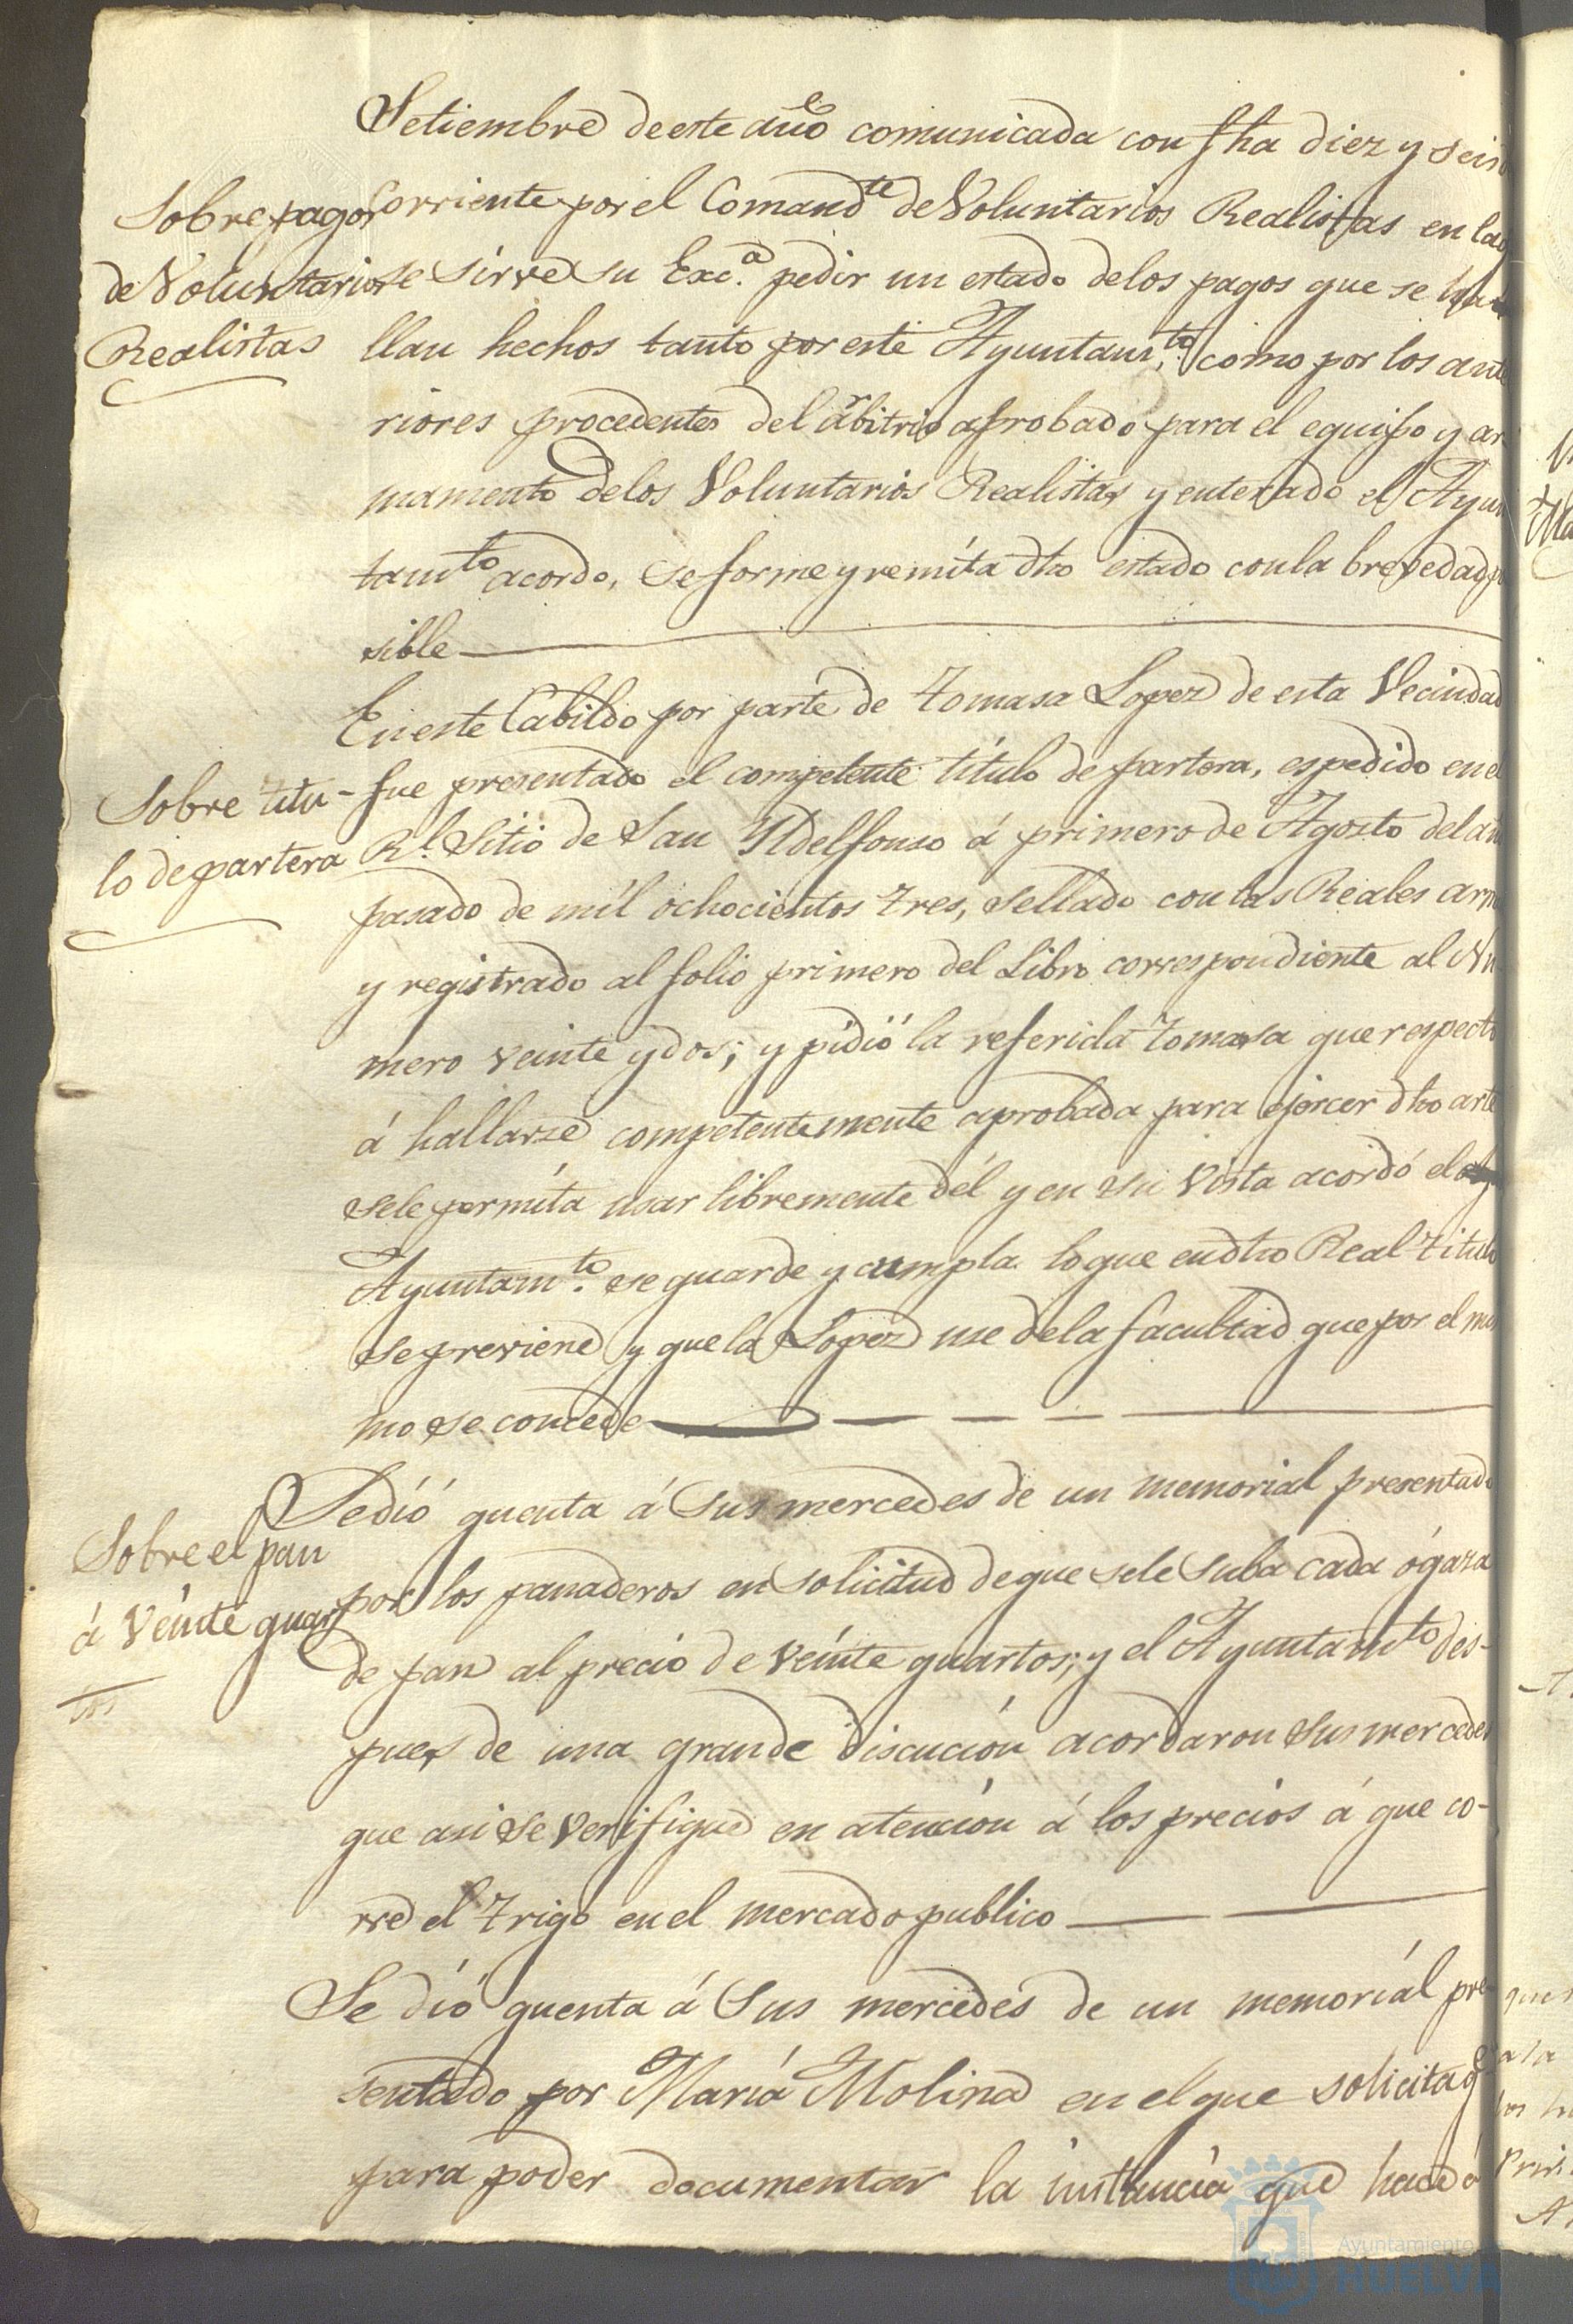 Setiembre de este año comunicada con fha diez y seis
Sobre pagos
de Voluntarios
Realistas
corriente por el Comandte de Voluntarios Realistas en la q
se sirve su Exca. pedir un estado delos pagos que se ha
llan hechos tanto por este Ayuntamto. como por los ante
riores procedentes del arbitrio aprobado para el equipo y ar
mamento delos Voluntarios Realistas y enterado el Ayun
tamto acordo, se forme y remita dho estado con la brevedad po
sible
En este Cabildo por parte de Tomasa Lopez de esta Vecindad
Sobre titu-
lo de partera
fue presentado el competente título de partera, espedido en el
Rl. Sitio de San Yldelfonso á primero de Agosto del año
pasado de mil ochocientos tres, sellado con las Reales arma
y registrado al folio primero del Libro correspondiente al Nu
mero veinte y dos; y pidió la referida Tomasa que respecto
á hallarse competentemente aprobada para ejercer dho arte
sele permíta usar libremente dél y en su vista acordó el
Ayuntamto. se guarde y cumpla lo que en dho Real titulo
se previene y que la Lopez use dela facultad que por el mis
mo se concede
Se dió quenta á Sus mercedes de un memorial presentado
Sobre el pan
á veinte quar
tos
por los panaderos en solicitud de que sele suba cada ógaza
de pan al precio de veinte quartos; y el Ayuntamto des-
pues de una grande discución acordaron sus mercedes
que asi se verifique en atención á los precios á que co-
rre el trigo en el mercado publico
Se dió quenta á Sus mercedes de un memoríal pre
sentado por María Molina en el que solicita q
para poder documentar la instancia que hace á
Ayuntamiento de
HUELVA